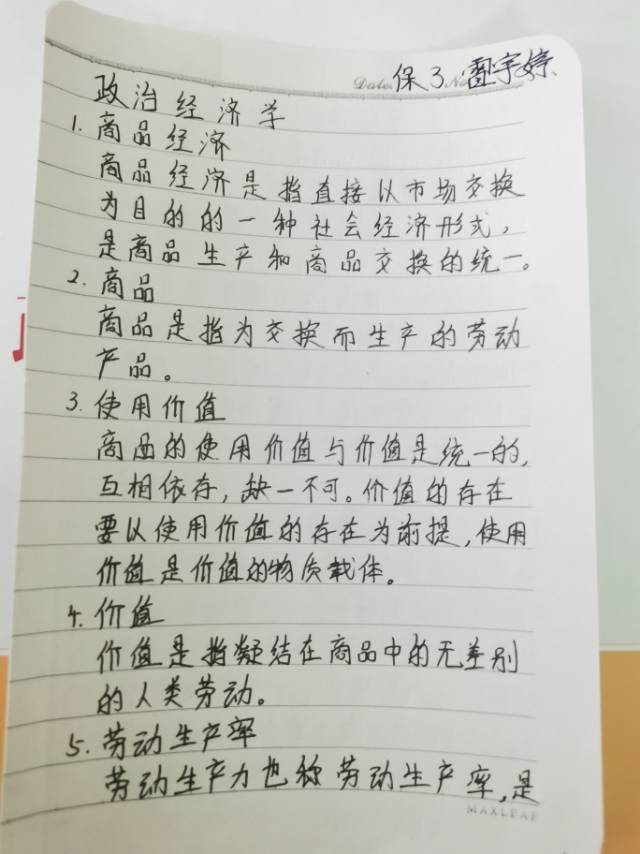 Date. 保3 No 宇婷
政治经济学
1. 商品经济
商品经济是指直接以市场交换
为目的的一种社会经济形式,
是商品生产和商品交换的统一。
2. 商品
商品是指为交换而生产的劳动
产品。
3. 使用价值
商品的使用价值与价值是统一的,
互相依存,缺一不可。价值的存在
要以使用价值的存在为前提,使用
价值是价值的物质载体。
4. 价值
价值是指凝结在商品中的无差别
的人类劳动。
5. 劳动生产率
劳动生产力也称劳动生产率,是
MAXLEAF